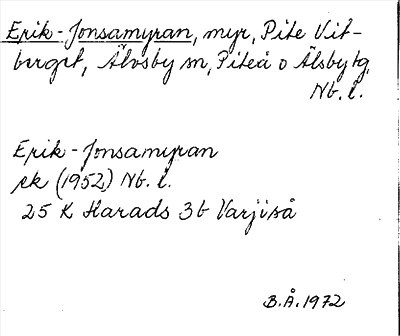 Erik-Jonsamyran, myr, Pite Vit-
berget, Älvsby sn, Piteå o Älsby tg
Nb. l.
Erik-Jonsamyran
ek (1952) Nb. l.
25 K Harads 3b Varjiså
B.Å. 1972